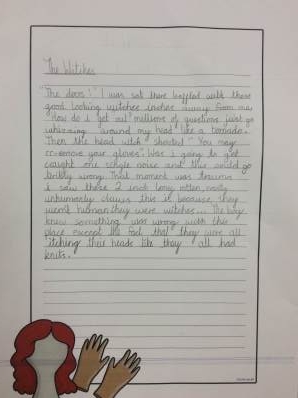 The Witches
"The doors!" I was sat there baffled with these
good looking witches inches away from me.
"How do i get out" millions of questions just go
whizzing around my head like a tornado.
Then the head witch shouted "You may
re-emove your gloves". Was i going to get
caught one single noise and this would go
terribly wrong. That moment was
i saw those 2 inch long rotten, nasty
unhumanly claws this is because they
weren't human they were witches... The boy
knew something was wrong with this
place except the fact that they were all
itching their heads like they all had
knits.